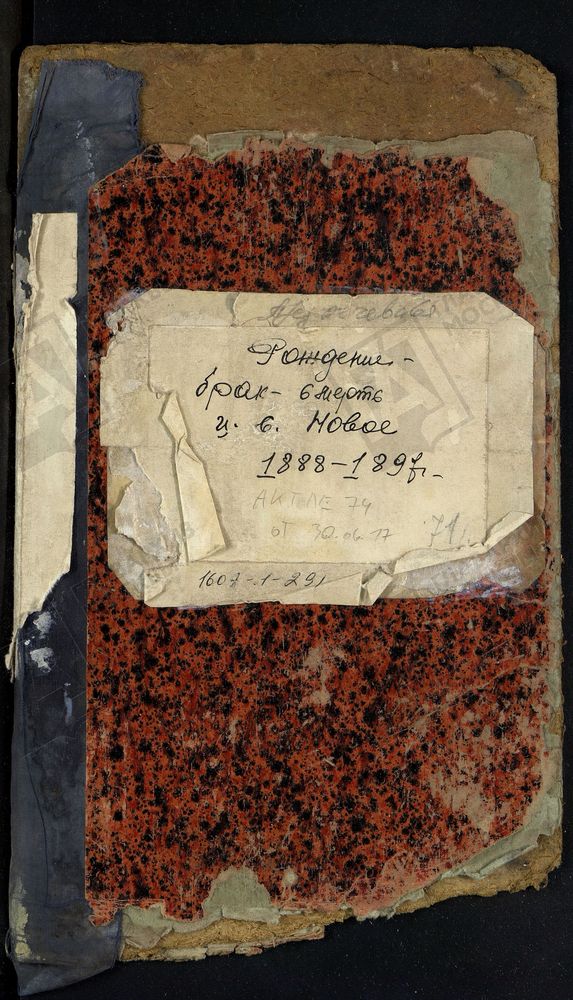 Рождение -
брак - смерть
ц. с. Новое
1888-1897г.
АКТ № 74
от 30.06.17
71
1607-1-291